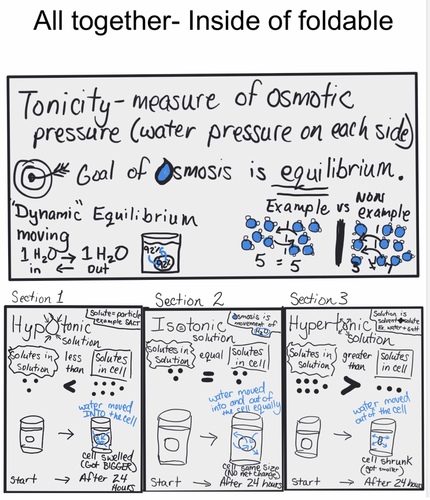 All together- Inside of foldable
Tonicity- measure of osmotic
pressure (water pressure on each side)
Goal of Osmosis is equilibrium.
"Dynamic" Equilibrium
moving
1 H₂O → 1 H₂O
in ← out
Example vs Non example
5 = 5
Section 1
Hypotonic
solution
Solute= particle
example SALT
Solutes in
Solution
less
than
Solutes
in cell
<
water moved
INTO the cell
cell swelled
(Got BIGGER)
Start → After 24
Hours
Section 2
Isotonic
solution
Osmosis is
movement of
H₂O
Solutes in
Solution
equal
Solutes
in cell
=
water moved
into and out of
the cell equally
cell same size
(No net change)
Start → After 24 Hours
Section 3
Hypertonic
solution
Solution is
Solvent+solute
Ex. water+salt
Solutes in
Solution
greater
than
Solutes
in cell
>
water moved
out of the cell
cell shrunk
(got smaller)
Start → After 24 hours